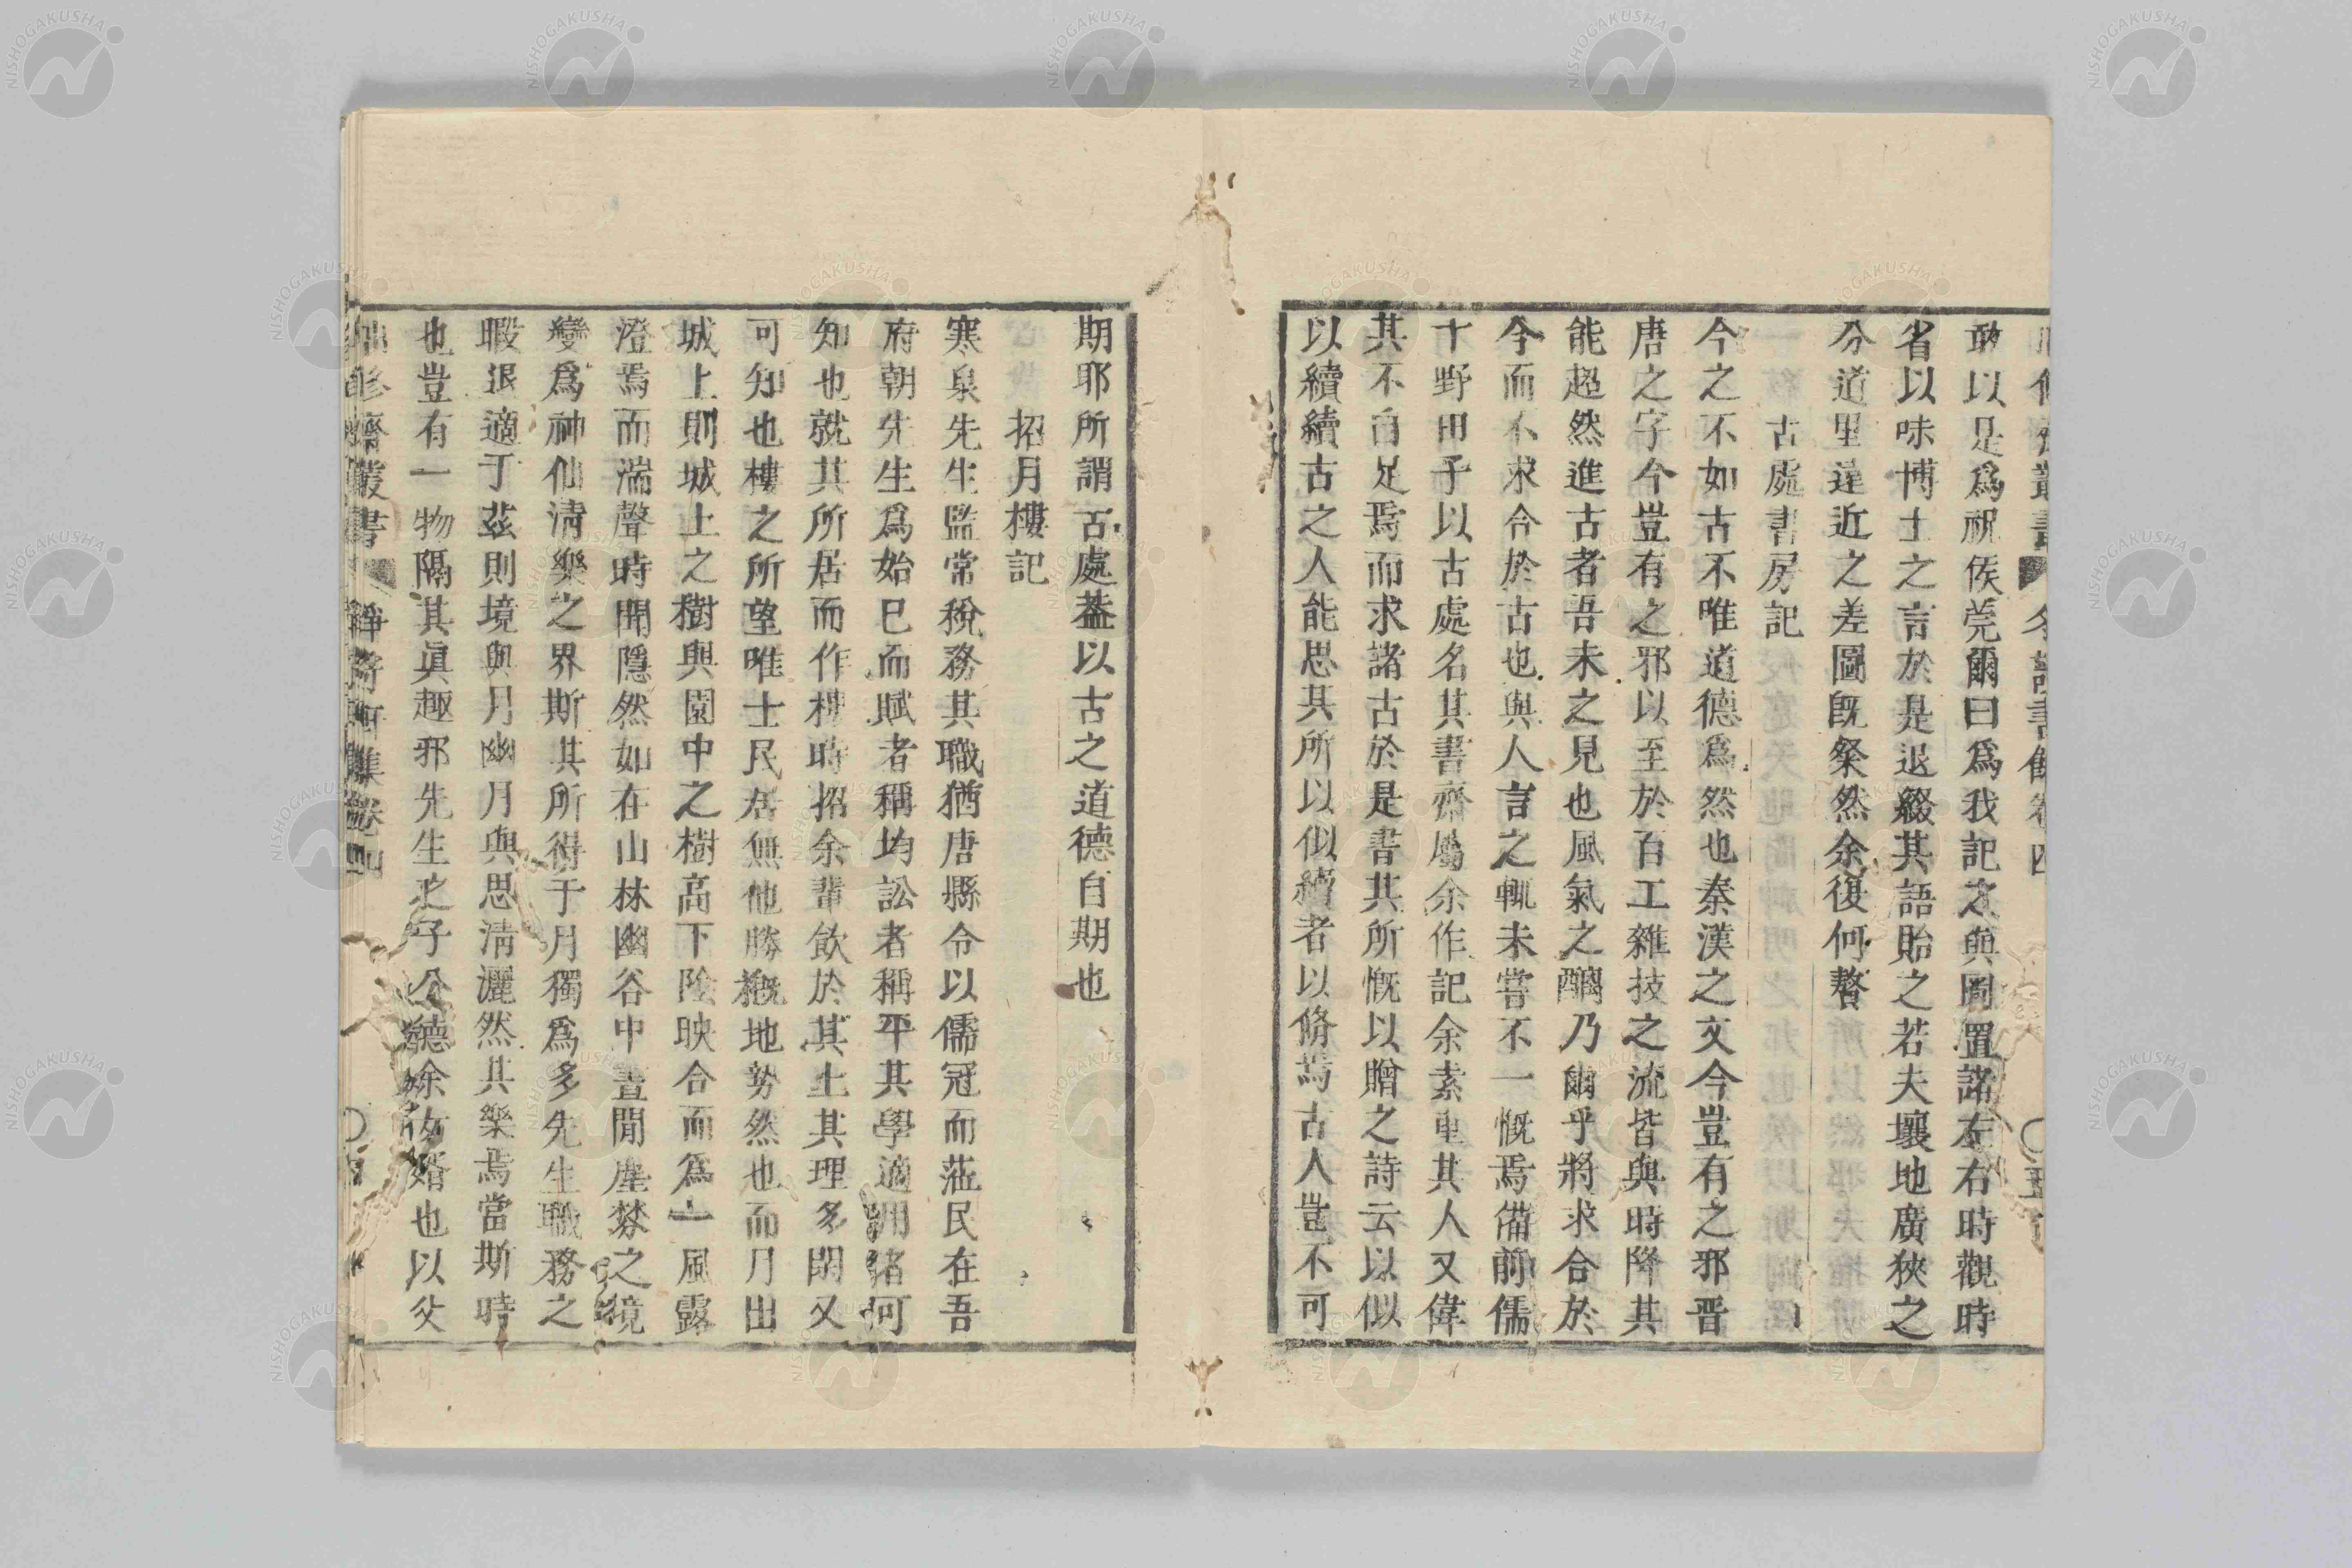 敢以是爲祝侯莞爾曰爲我記之與圖置諸左右時觀時
省以味博士之言於是退綴其語貽之若夫壤地廣狹之
分道里遠近之差圖既粲然余復何贅
古處書房記
今之不如古不唯道德爲然也秦漢之文今豈有之邪晋
唐之字今豈有之邪以至於百工雜技之流皆與時降其
能超然進古者吾未之見也風氣之醨乃爾乎將求合於
今而不求合於古也與人言之輒未嘗不一慨焉備前儒
士野田子以古處名其書齋屬余作記余素重其人又偉
其不自足焉而求諸古於是書其所慨以贈之詩云以似
以續續古之人能思其所以似續者以脩焉古人豈不可
期耶所謂古處葢以古之道德自期也
招月樓記
寒泉先生監常稅務其職猶唐縣令以儒冠而莅民在吾
府朝先生爲始已而賦者稱均訟者稱平其學適用諸可
知也就其所居而作樓時招余輩飲於其上其理多閑又
可知也樓之所望唯士民居無他勝槪地勢然也而月出
城上則城上之樹與園中之樹高下陰映合而爲一風露
澄焉而湍聲時聞隱然如在山林幽谷中晝間塵棼之境
變爲神仙清樂之界斯其所得于月獨爲多先生職務之
暇退適于茲則境與月幽月與思淸灑然其樂焉當斯時
也豈有一物隔其眞趣邪先生之子公德余女婿也以父
修齋叢書 靜寄軒集卷四